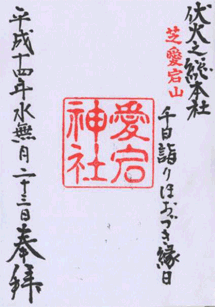 伏火之総本社
芝愛宕山
千日詣りほおづき縁日
愛宕
神社
平成十四年水無月二十三日奉拝